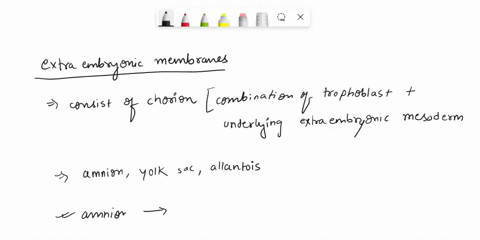 extra embryonic membranes
⇒ consist of chorion [combination of trophoblast +
underlying extraembryonic mesoderm
⇒ amnion, yolk sac, allantois
← amnion →